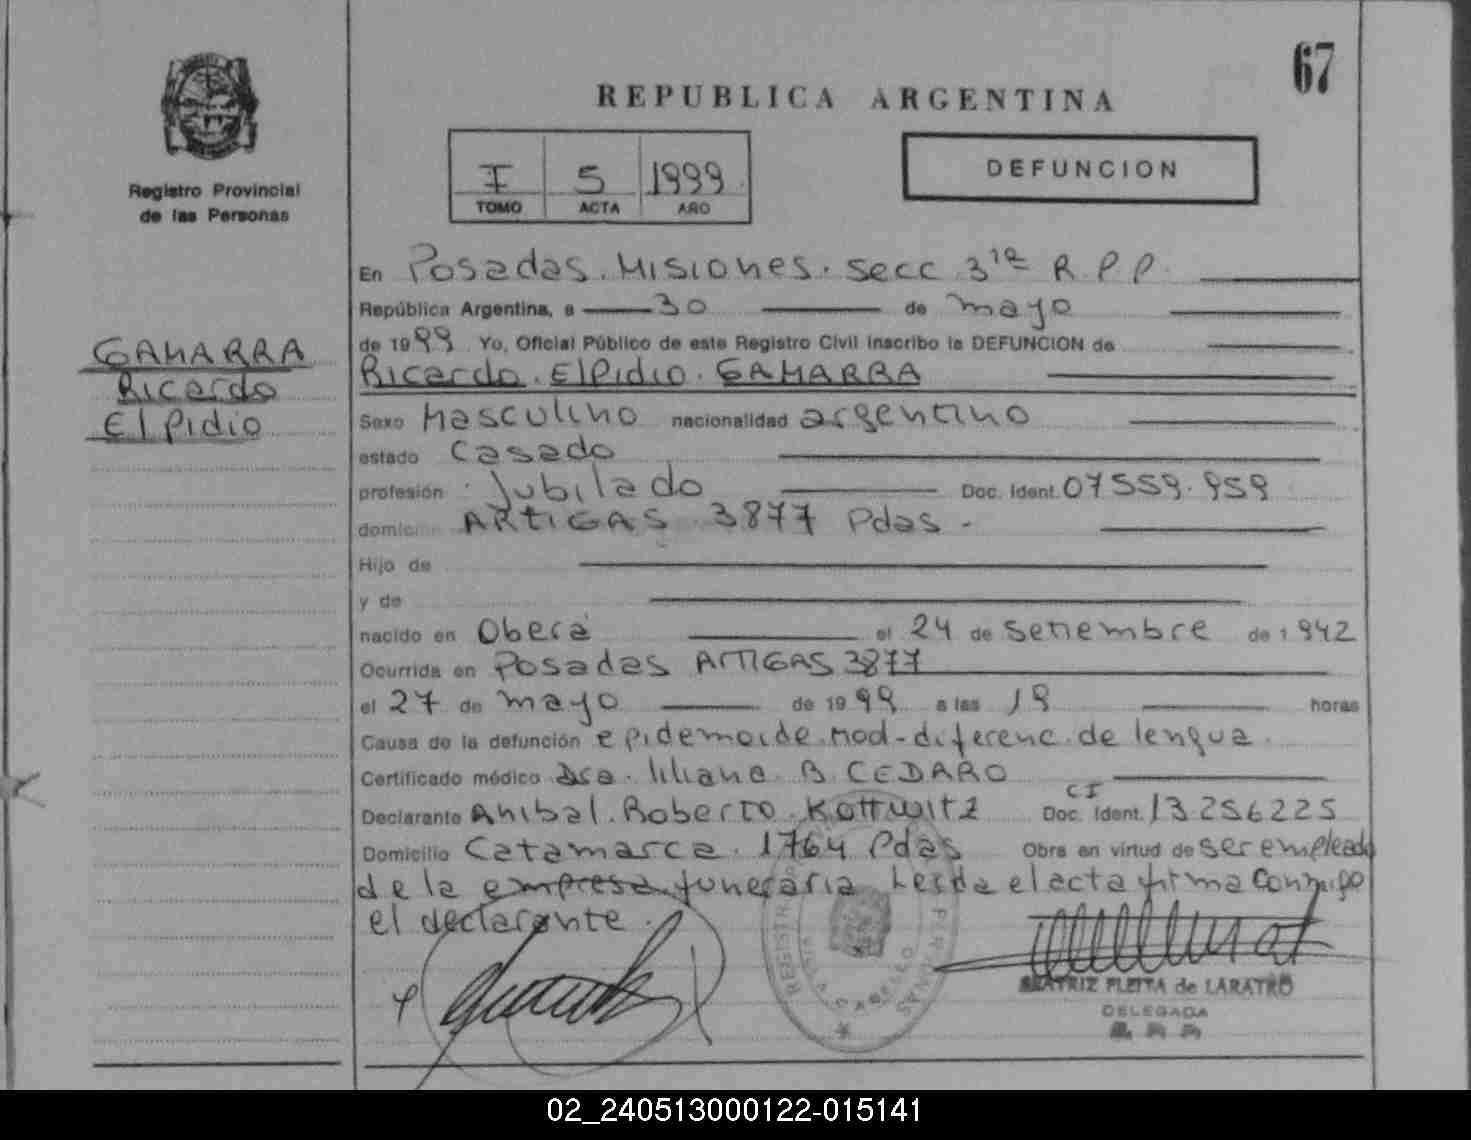 67
REPUBLICA ARGENTINA
Registro Provincial
de las Personas
I 5 1999
TOMO ACTA AÑO
DEFUNCION
GAMARRA
Ricardo
Elpidio
En Posadas. Misiones. secc 3ra R.P.P.
República Argentina, a 30 de mayo
de 1999 Yo, Oficial Público de este Registro Civil inscribo la DEFUNCION de
Ricardo. Elpidio. GAMARRA
Sexo Masculino nacionalidad argentino
estado Casado
profesión Jubilado Doc. Ident. 07559.959
domici ARTIGAS 3877 Pdas -
Hijo de
y de
nacido en Oberá el 24 de setiembre de 1942
Ocurrida en Posadas ARTIGAS 3877
el 27 de mayo de 1999 a las 19 horas
Causa de la defunción epidemoide.mod-diferenc.de lengua.
Certificado médico Dra. liliana B CEDARO
Declarante Anibal. Roberto. Kottwitz CI Doc. Ident. 13256225
Domicilio Catamarca. 1764 Pdas Obra en virtud de ser empleado
de la empresa funeraria Leida el acta firma conmigo
el declarante.
BEATRIZ FLEITA de LARATRO
DELEGADA
02_240513000122-015141